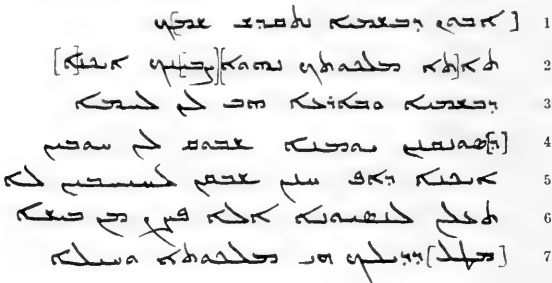 1 ] ܐܒܘܢ ܕܒܫܡܝܐ ܢܬܩܕܫ ܫܡ[ܟ
2 ܬܐ]ܬܐ ܡܠܟܘܬܟ ܢܗܘܐ][ܨܒ]ܝܢܟ ܐܝܟܢ[ܐ]
3 ܕܒܫܡܝܐ ܘܒܐܪܥܐ ܗܒ ܠܢ ܠܚܡܐ
4 ܕ]ܣܘܢܩܢܢ ܝܘܡܢܐ ܫܒܘܩ ܠܢ ܚܘܒܝܢ
5 ܐܝܟܢܐ ܕܐܦ ܚܢܢ ܫܒܩܢ ܠܚܝܒܝܢ ܠܐ
6 ܬܥܠܢ ܠܢܣܝܘܢܐ ܐܠܐ ܦܨܢ ܡܢ ܒܝܫܐ
7 [ܡܛܠ] ܕܕܝܠܟ ܗܝ ܡܠܟܘܬܐ ܘܚܝܠܐ